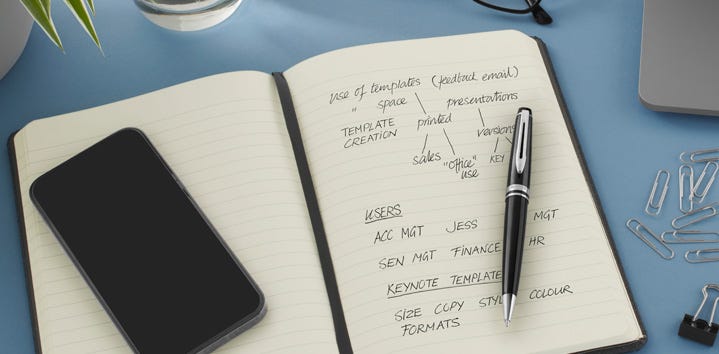 use of templates (feedback email)
" space presentations
TEMPLATE printed versions
CREATION
sales "office" KEY
use
USERS
ACC MGT JESS MGT
SEN MGT FINANCE HR
KEYNOTE TEMPLATE
SIZE COPY COLOUR
FORMATS